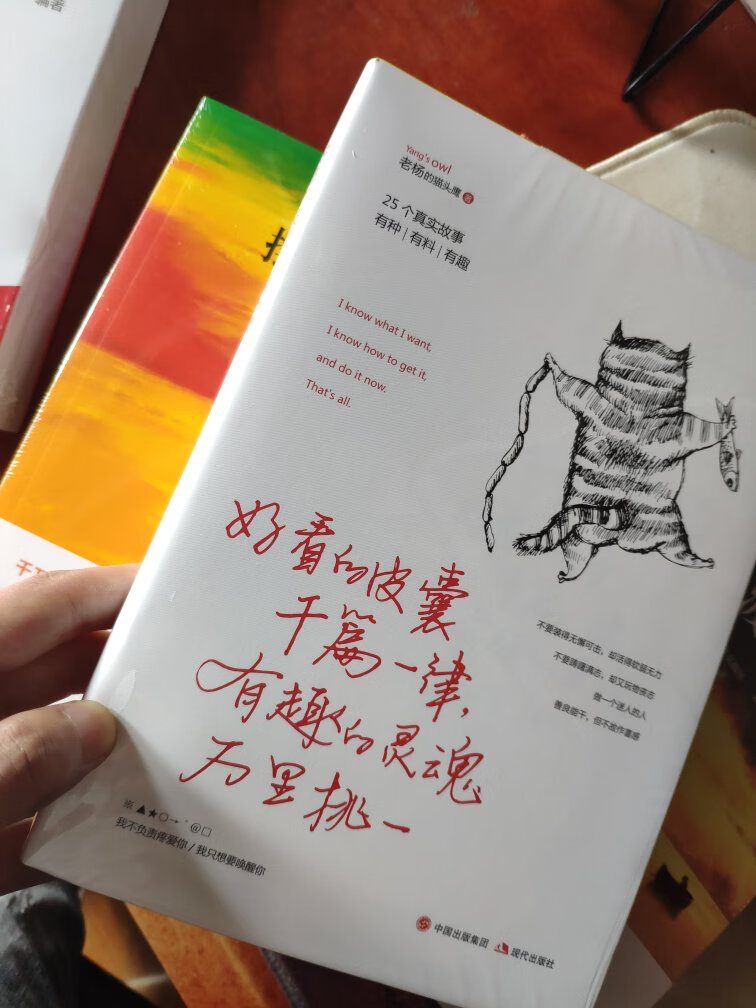 Yang's owl
老杨的猫头鹰 著
25个真实故事
有种|有料|有趣
I know what I want,
I know how to get it,
and do it now.
That's all.
好看的皮囊
千篇一律,
有趣的灵魂
万里挑一
不要装得无懈可击,却活得软弱无力
不要踌躇满志,却又玩物丧志
做一个迷人的人
善良能干,但不故作喜感
※▲★○→〃@□
我不负责疼爱你/我只想要唤醒你
中国出版集团 现代出版社